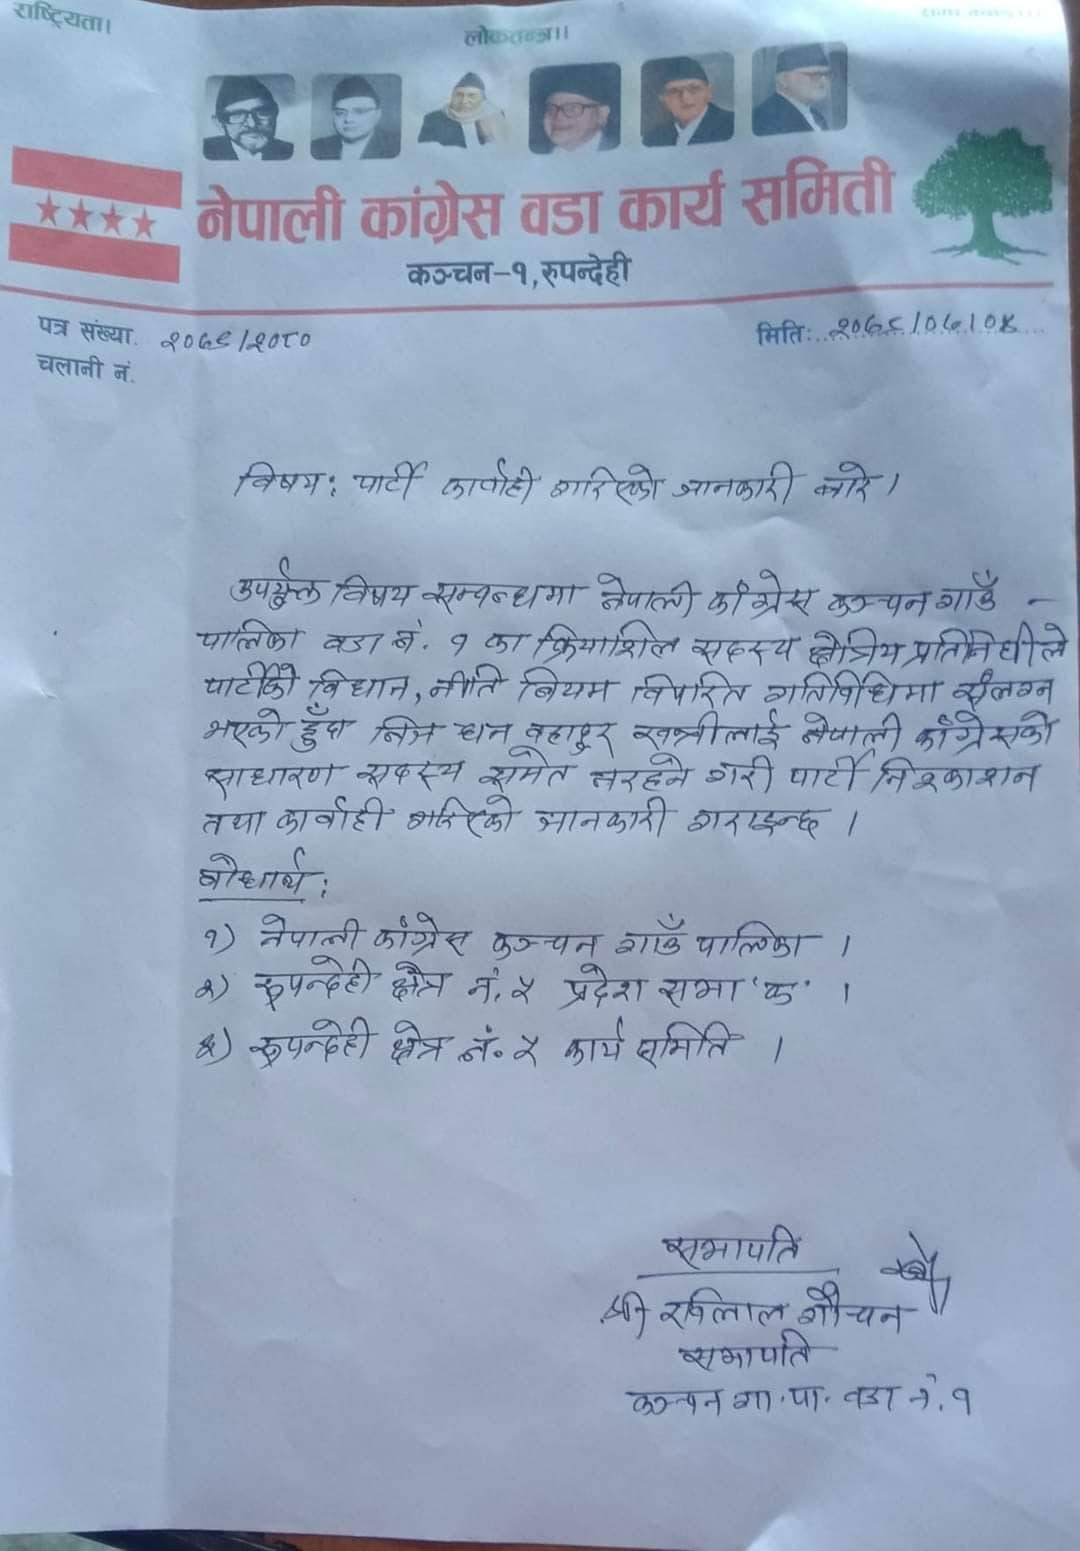 राष्ट्रियता।
लोकतन्त्र।।
नेपाली कांग्रेस वडा कार्य समिती
कञ्चन-१, रुपन्देही
पत्र संख्या. २०७९/२०८०
मिति: २०७९/०७/०४
चलानी नं.
विषय: पार्टी कार्वाही गरिएको जानकारी बारे।
उपर्युक्त विषय सम्वन्धमा नेपाली काँग्रेस कञ्चन गाउँ -
पालिका वडा नं. १ का क्रियाशिल सदस्य क्षेत्रिय प्रतिनिधीले
पार्टीको विधान, नीति नियम विपरित गतिविधिमा संलग्न
भएको हुँदा निज धन वहादुर खत्रीलाई नेपाली काँग्रेसको
साधारण सदस्य समेत नरहने गरी पार्टी निश्काशन
तथा कार्वाही गरिएको जानकारी गराइन्छ।
बोधार्थ:
१) नेपाली काँग्रेस कञ्चन गाउँ पालिका ।
२) रूपन्देही क्षेत्र नं. ५ प्रदेश सभा 'क' ।
३) रूपन्देही क्षेत्र नं. ५ कार्य समिति ।
सभापति
श्री गौचन
सभापति
कञ्चन गा.पा. वडा नं. १